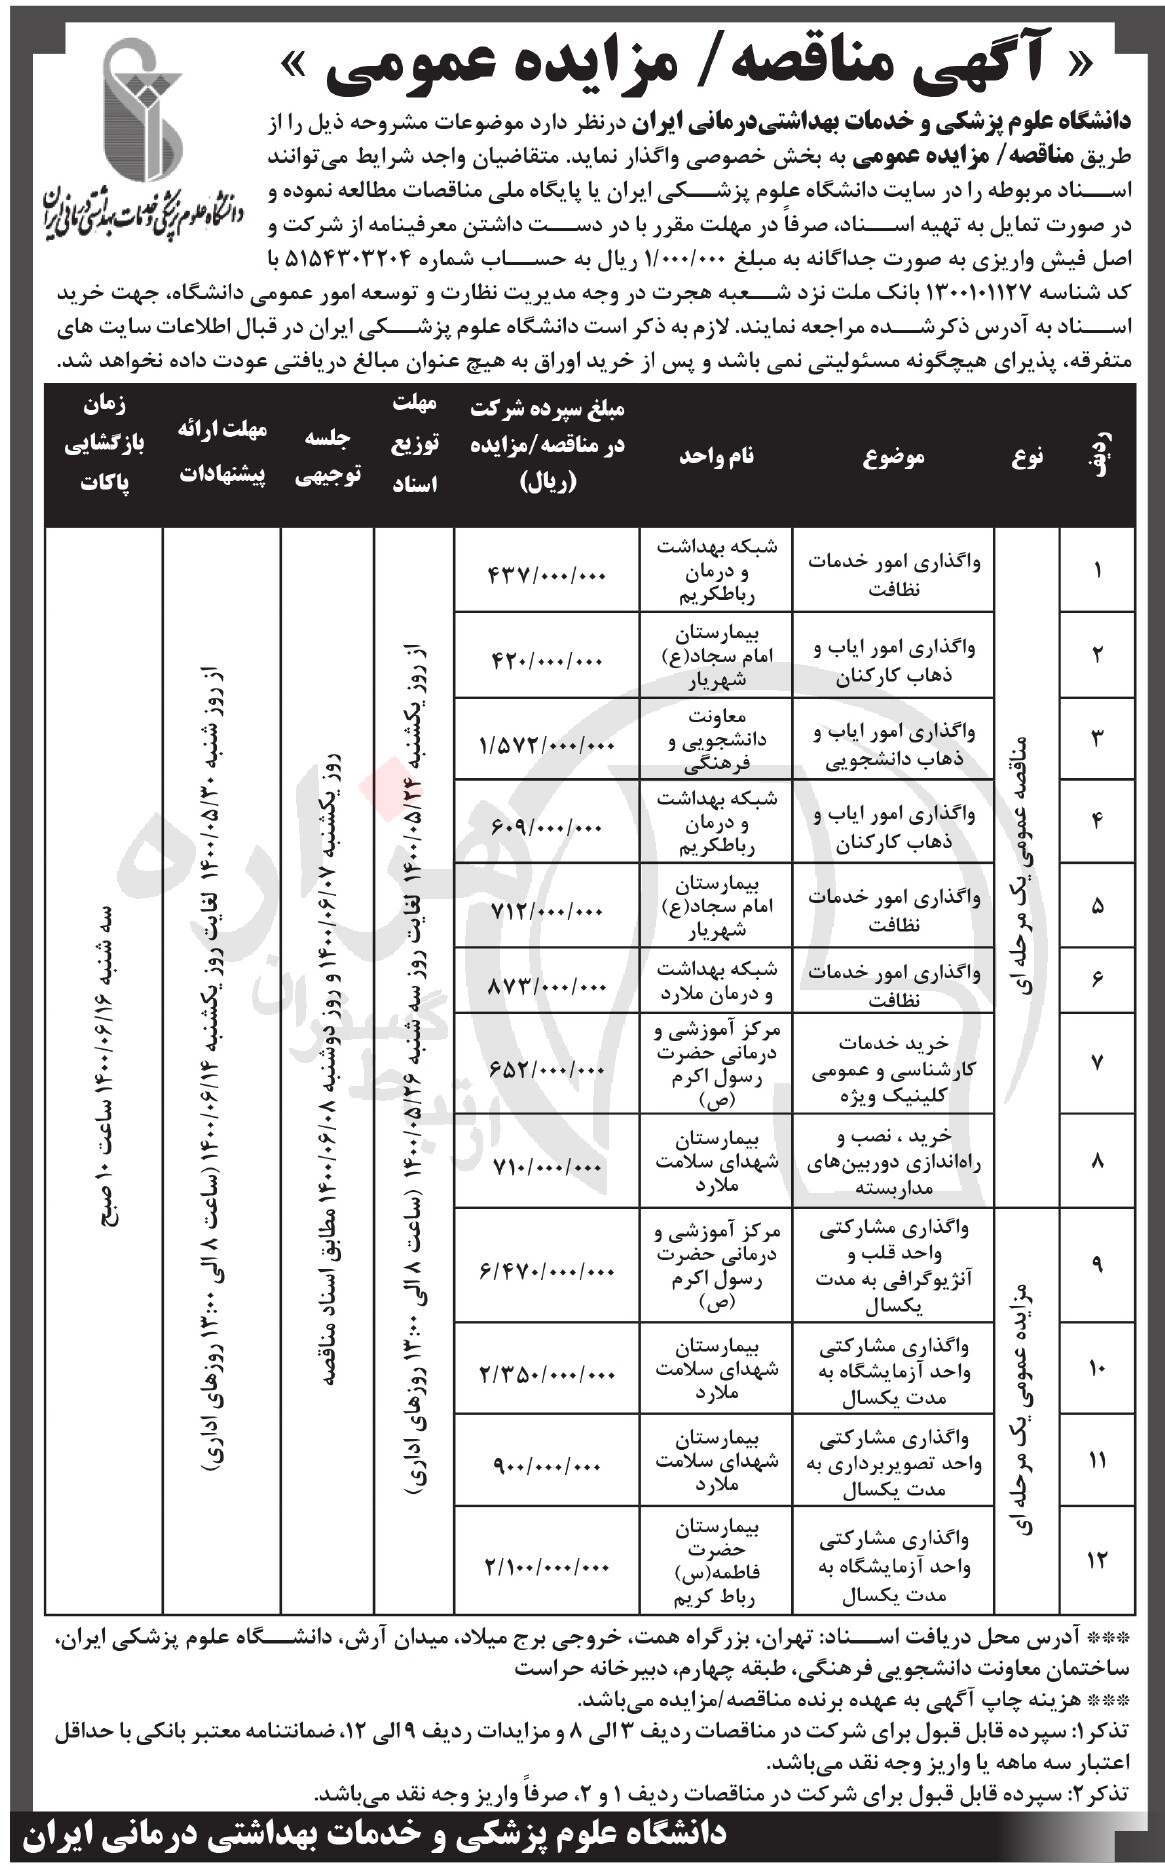 « آگهی مناقصه/ مزایده عمومی »
دانشگاه علوم پزشکی و خدمات بهداشتی درمانی ایران
دانشگاه علوم پزشکی و خدمات بهداشتی‌درمانی ایران درنظر دارد موضوعات مشروحه ذیل را از
طریق مناقصه/ مزایده عمومی به بخش خصوصی واگذار نماید. متقاضیان واجد شرایط می‌توانند
اسـناد مربوطه را در سایت دانشگاه علوم پزشـکی ایران یا پایگاه ملی مناقصات مطالعه نموده و
در صورت تمایل به تهیه اسـناد، صرفاً در مهلت مقرر با در دست داشتن معرفینامه از شرکت و
اصل فیش واریزی به صورت جداگانه به مبلغ ۱/۰۰۰/۰۰۰ ریال به حساب شماره ۵۱۵۴۳۰۳۲۰۴ با
کد شناسه ۱۳۰۰۱۰۱۱۲۷ بانک ملت نزد شعبه هجرت در وجه مدیریت نظارت و توسعه امور عمومی دانشگاه، جهت خرید
اسـناد به آدرس ذکرشـده مراجعه نمایند. لازم به ذکر است دانشگاه علوم پزشـکی ایران در قبال اطلاعات سایت های
متفرقه، پذیرای هیچگونه مسئولیتی نمی باشد و پس از خرید اوراق به هیچ عنوان مبالغ دریافتی عودت داده نخواهد شد.
ردیف
نوع
موضوع
نام واحد
مبلغ سپرده شرکت
در مناقصه/مزایده
(ریال)
مهلت
توزیع
اسناد
جلسه
توجیهی
مهلت ارائه
پیشنهادات
زمان
بازگشایی
پاکات
مناقصه عمومی یک مرحله ای
۱
واگذاری امور خدمات
نظافت
شبکه بهداشت
و درمان
رباطکریم
۴۳۷/۰۰۰/۰۰۰
۲
واگذاری امور ایاب و
ذهاب کارکنان
بیمارستان
امام سجاد(ع)
شهریار
۴۲۰/۰۰۰/۰۰۰
۳
واگذاری امور ایاب و
ذهاب دانشجویی
معاونت
دانشجویی و
فرهنگی
۱/۵۷۲/۰۰۰/۰۰۰
۴
واگذاری امور ایاب و
ذهاب کارکنان
شبکه بهداشت
و درمان
رباطکریم
۶۰۹/۰۰۰/۰۰۰
۵
واگذاری امور خدمات
نظافت
بیمارستان
امام سجاد(ع)
شهریار
۷۱۲/۰۰۰/۰۰۰
۶
واگذاری امور خدمات
نظافت
شبکه بهداشت
و درمان ملارد
۸۷۳/۰۰۰/۰۰۰
۷
خرید خدمات
کارشناسی و عمومی
کلینیک ویژه
مرکز آموزشی و
درمانی حضرت
رسول اکرم
(ص)
۶۵۲/۰۰۰/۰۰۰
۸
خرید ، نصب و
راه‌اندازی دوربین‌های
مداربسته
بیمارستان
شهدای سلامت
ملارد
۷۱۰/۰۰۰/۰۰۰
مزایده عمومی یک مرحله ای
۹
واگذاری مشارکتی
واحد قلب و
آنژیوگرافی به مدت
یکسال
مرکز آموزشی و
درمانی حضرت
رسول اکرم
(ص)
۶/۴۷۰/۰۰۰/۰۰۰
۱۰
واگذاری مشارکتی
واحد آزمایشگاه به
مدت یکسال
بیمارستان
شهدای سلامت
ملارد
۲/۳۵۰/۰۰۰/۰۰۰
۱۱
واگذاری مشارکتی
واحد تصویربرداری به
مدت یکسال
بیمارستان
شهدای سلامت
ملارد
۹۰۰/۰۰۰/۰۰۰
۱۲
واگذاری مشارکتی
واحد آزمایشگاه به
مدت یکسال
بیمارستان
حضرت
فاطمه(س)
رباط کریم
۲/۱۰۰/۰۰۰/۰۰۰
از روز یکشنبه ۱۴۰۰/۰۵/۲۴ لغایت روز سه شنبه ۱۴۰۰/۰۵/۲۶ (ساعت ۸ الی ۱۳:۰۰ روزهای اداری)
روز یکشنبه ۱۴۰۰/۰۶/۰۷ و روز دوشنبه ۱۴۰۰/۰۶/۰۸ مطابق اسناد مناقصه
از روز شنبه ۱۴۰۰/۰۵/۳۰ لغایت روز یکشنبه ۱۴۰۰/۰۶/۱۴ (ساعت ۸ الی ۱۳:۰۰ روزهای اداری)
سه شنبه ۱۴۰۰/۰۶/۱۶ ساعت ۱۰ صبح
هزاره
گستران
ارتباط
*** آدرس محل دریافت اسـناد: تهران، بزرگراه همت، خروجی برج میلاد، میدان آرش، دانشـگاه علوم پزشکی ایران،
ساختمان معاونت دانشجویی فرهنگی، طبقه چهارم، دبیرخانه حراست
*** هزینه چاپ آگهی به عهده برنده مناقصه/مزایده می‌باشد.
تذکر۱: سپرده قابل قبول برای شرکت در مناقصات ردیف ۳ الی ۸ و مزایدات ردیف ۹ الی ۱۲، ضمانتنامه معتبر بانکی با حداقل
اعتبار سه ماهه یا واریز وجه نقد می‌باشد.
تذکر۲: سپرده قابل قبول برای شرکت در مناقصات ردیف ۱ و ۲، صرفاً واریز وجه نقد می‌باشد.
دانشگاه علوم پزشکی و خدمات بهداشتی درمانی ایران